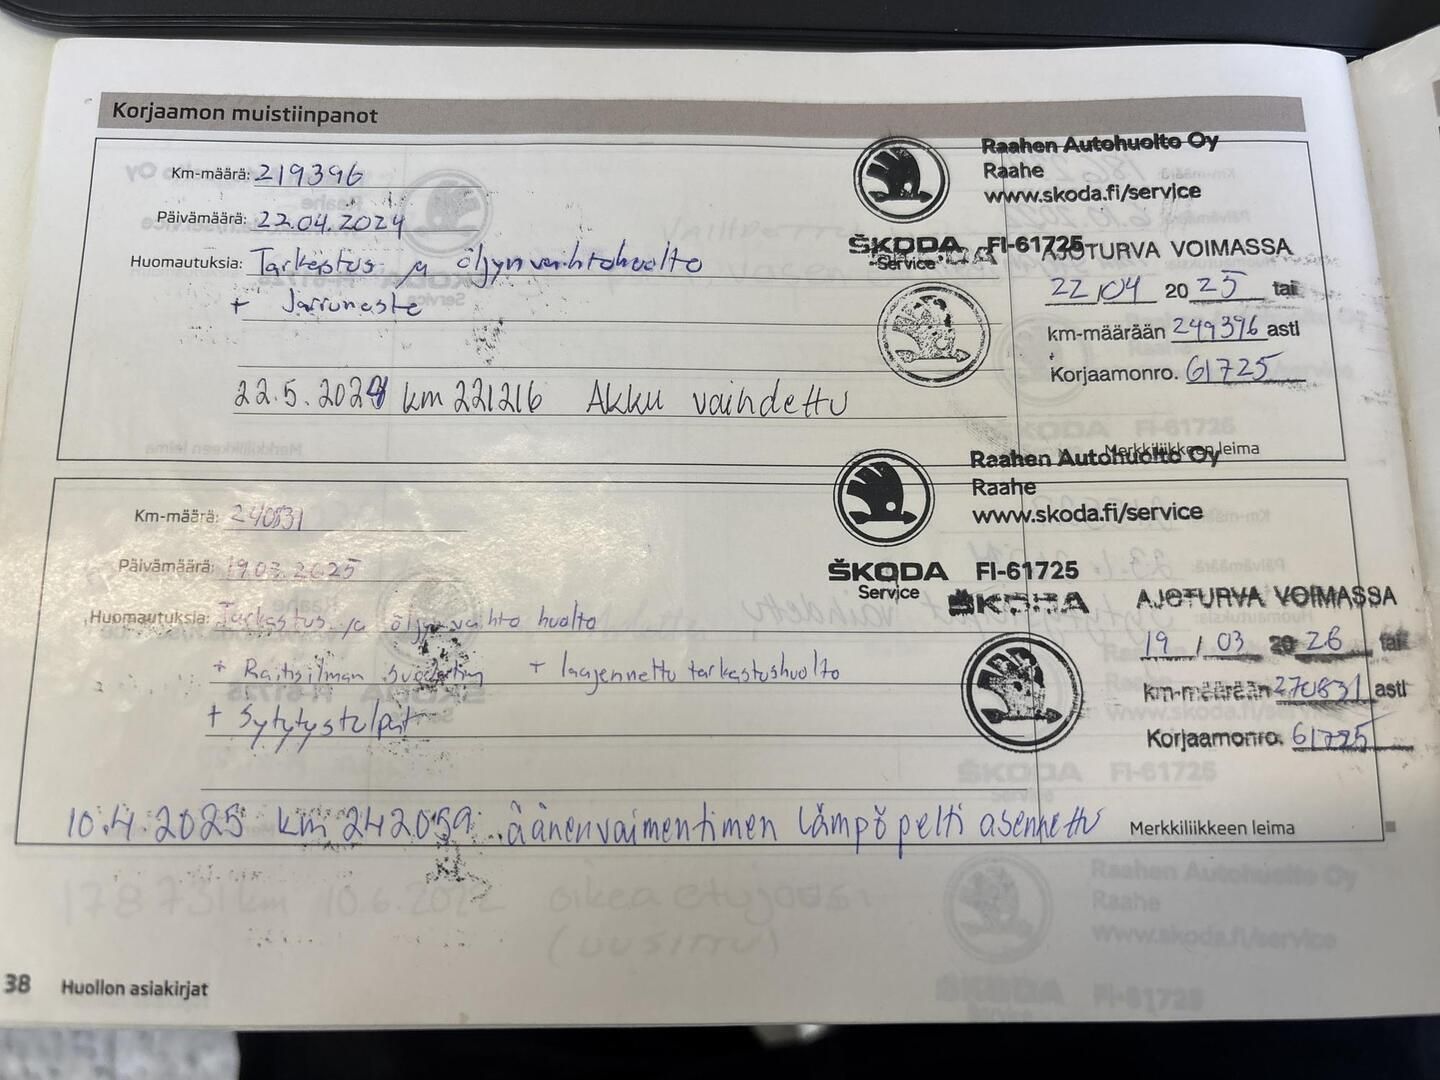 Korjaamon muistiinpanot
Km-määrä: 219396
Päivämäärä: 22.04.2024
Huomautuksia: Tarkastus ja öljynvaihtohuolto
+ Jarruneste
22.5.2024 km 221216 Akku vaihdettu
Raahen Autohuolto Oy
Raahe
www.skoda.fi/service
ŠKODA FI-61725
Service
AJOTURVA VOIMASSA
22/04 2025 tai
km-määrään 249396 asti
Korjaamonro. 61725
Merkkiliikkeen leima
Km-määrä: 240831
Päivämäärä: 19.03.2025
Huomautuksia: Tarkastus ja öljynvaihto huolto
+ Raitisilman + laajennettu tarkastushuolto
+ Sytytystulpat
10.4.2025 km 242059 äänenvaimentimen lämpöpelti asennettu
Raahen Autohuolto Oy
Raahe
www.skoda.fi/service
ŠKODA FI-61725
Service
ŠKODA
AJOTURVA VOIMASSA
19/03 2026 tai
km-määrään 270831 asti
Korjaamonro. 61725
Merkkiliikkeen leima
178731 km 10.6.2022 oikea etujousi
(UUSITTU)
38 Huollon asiakirjat